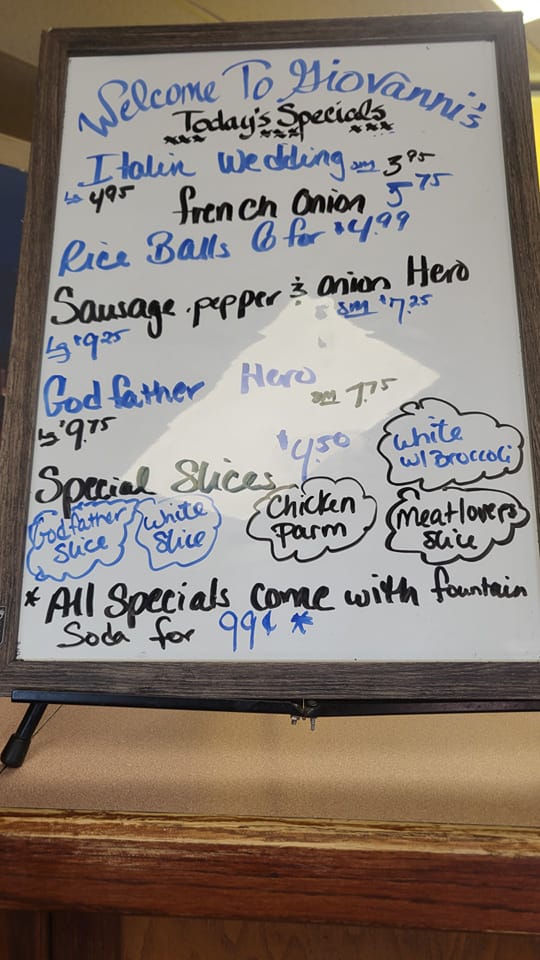 Welcome To Giovanni's
Today's Specials
*** *** ***
Italin Wedding sm 3.95
Lg 4.95
french Onion 5.75
Rice Balls 6 for $4.99
Sausage. pepper & onion Hero
sm $7.25
Lg $9.25
Godfather Hero sm 7.75
Lg $9.75
Special Slices $4.50
White
w/ Broccoli
Godfather
Slice
White
Slice
Chicken
Parm
Meatlovers
Slice
* All Specials come with fountain
Soda for 99¢ *